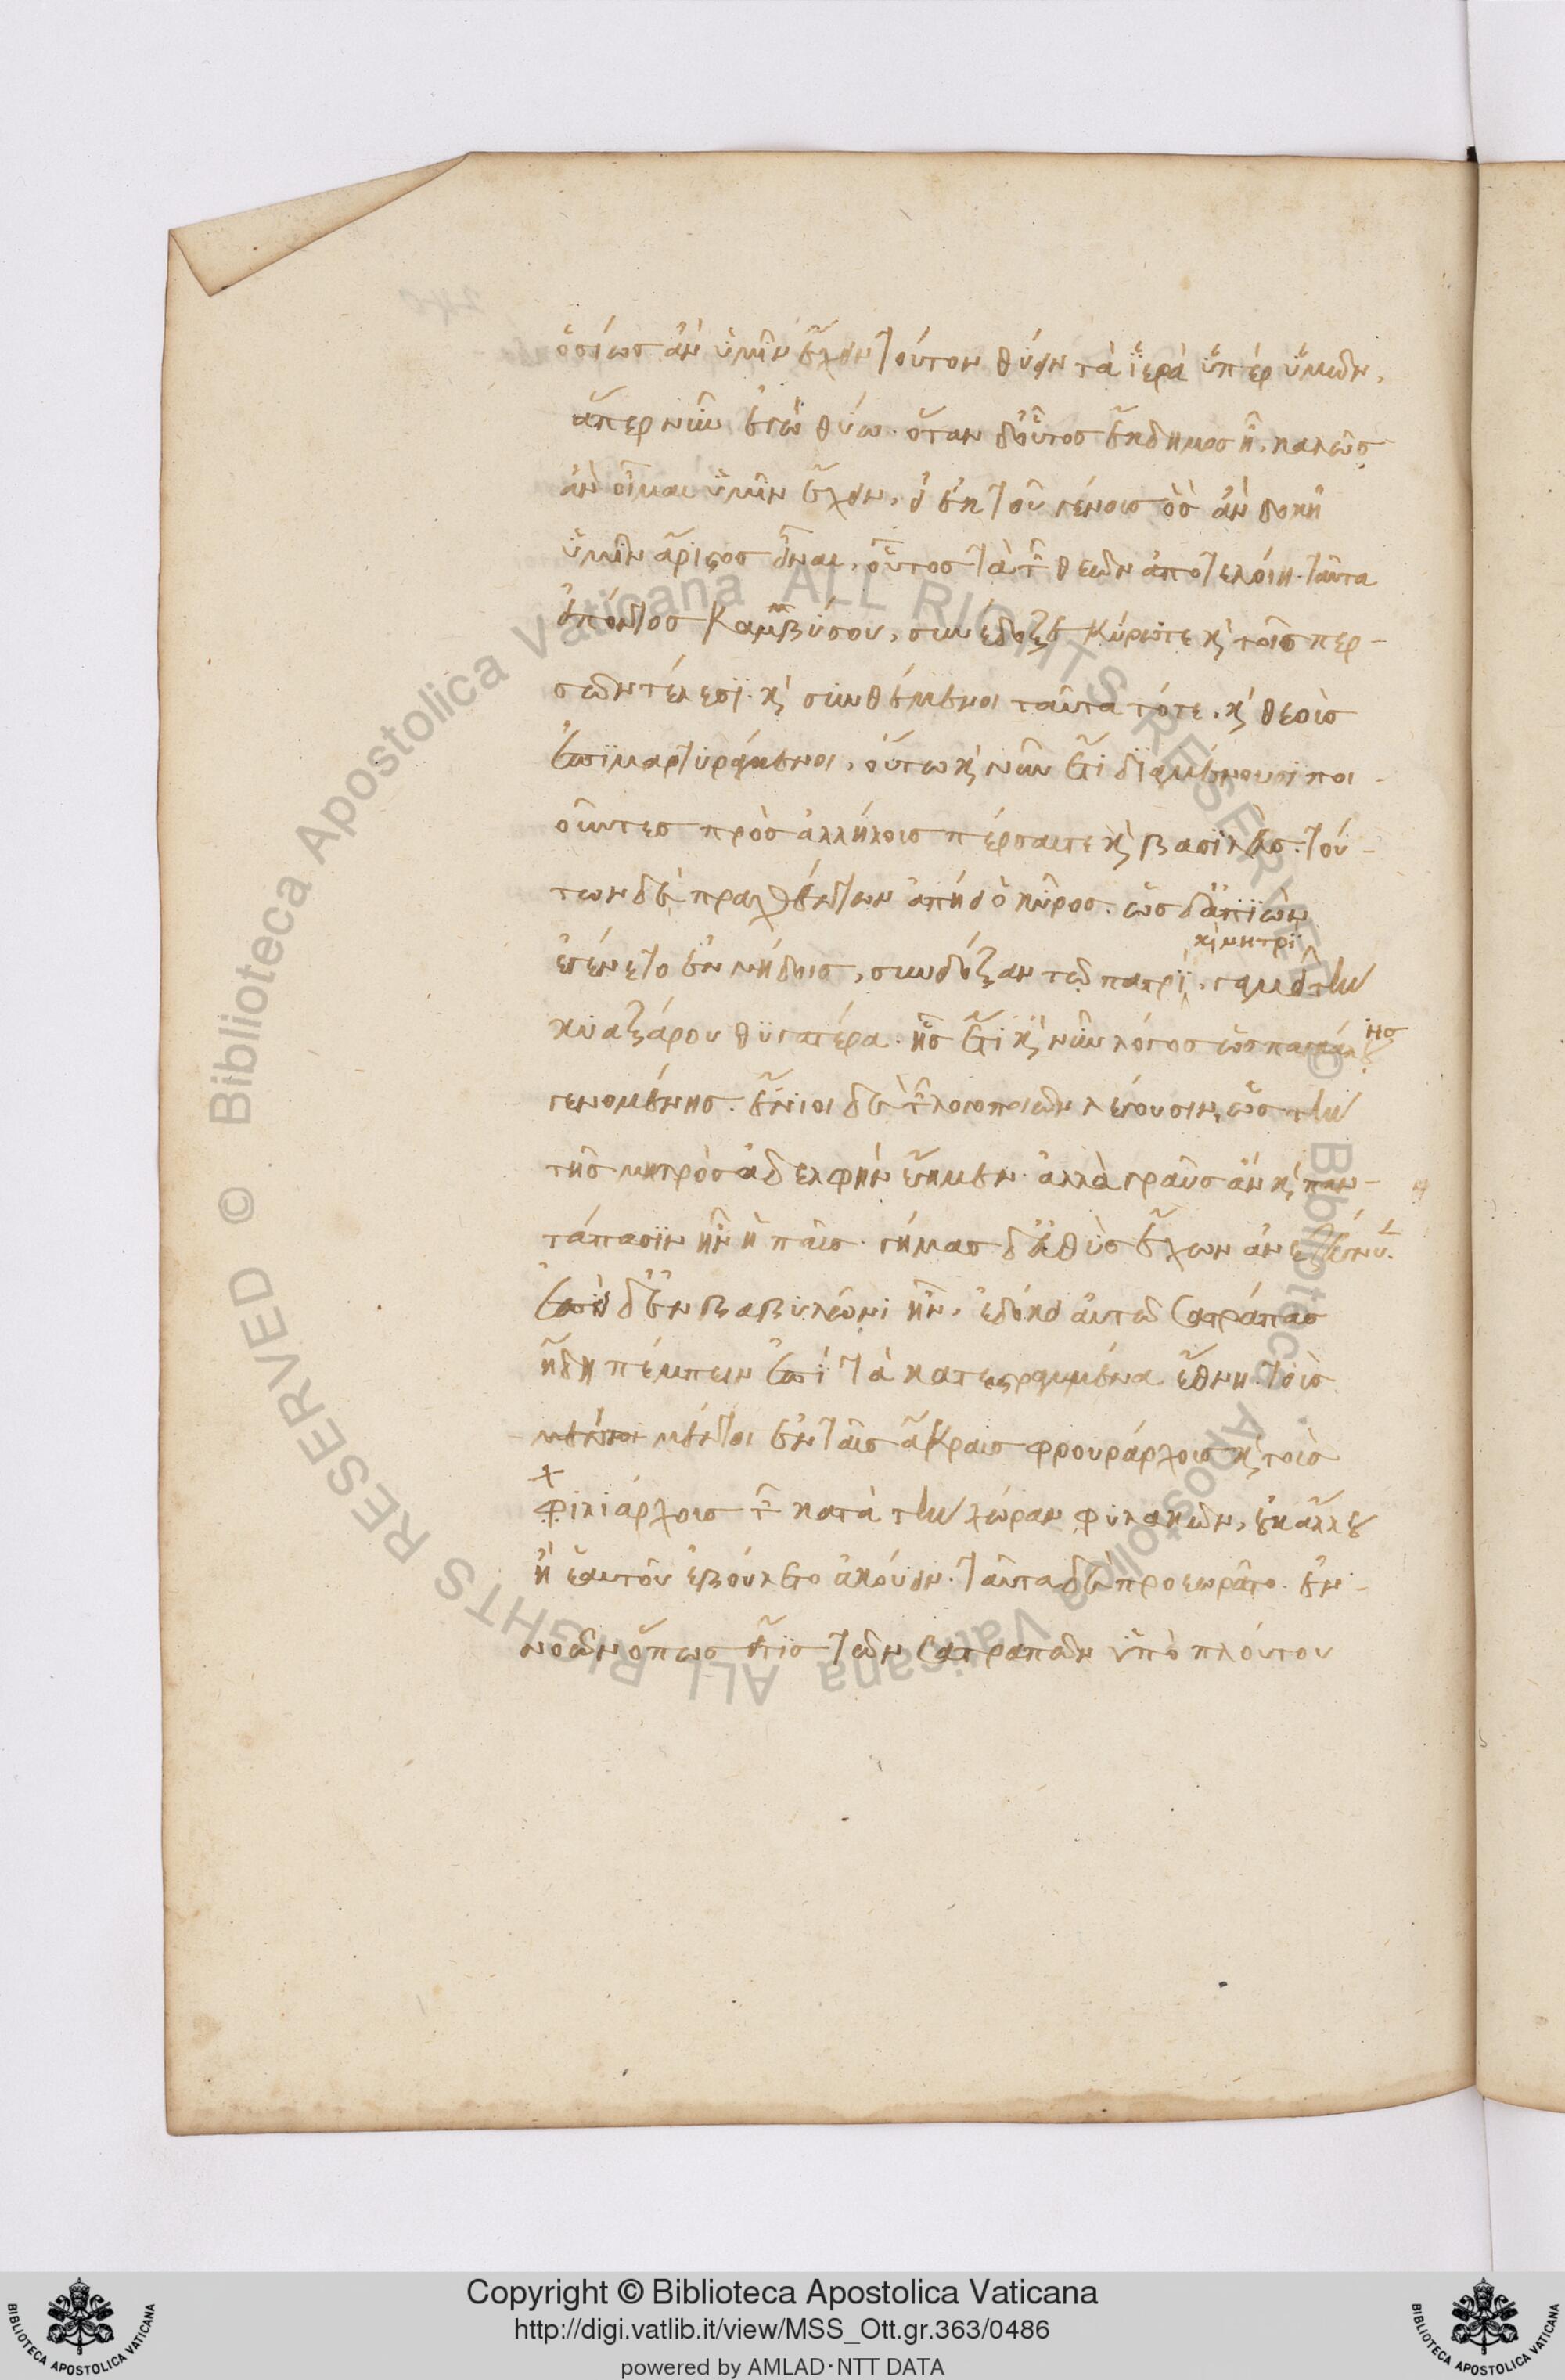 ὁσίως ἂν ὑμῖν ἔχειν τοῦτον θύειν τὰ ἱερὰ ὑπὲρ ὑμῶν,
ἅπερ νῦν ἐγὼ θύω. ὅταν δ' οὗτος ἔκδημος ᾖ, καλῶς
ἂν οἶμαι ὑμῖν ἔχειν, εἰ ἐκ τοῦ γένους ὃς ἂν δοκῇ
ὑμῖν ἄριστος εἶναι, οὗτος τὰ τῶν θεῶν ἀποτελοίη. ταῦτα
εἰπόντος Καμβύσου, συνέδοξε Κύρῳ τε καὶ τοῖς περ-
σῶν τέλεσι. καὶ συνθέμενοι ταῦτα τότε, καὶ θεοὺς
ἐπιμαρτυράμενοι, οὕτω καὶ νῦν ἔτι διαμένουσι ποι-
οῦντες πρὸς ἀλλήλους πέρσαι τε καὶ βασιλεύς. τού-
των δὲ πραχθέντων ἀπῄει ὁ κῦρος. ὡς δ' ἀπιὼν
καὶ μητρὶ
ἐγένετο ἐν μήδοις, συνδόξαν τῷ πατρὶ, γαμεῖ τὴν
κυαξάρου θυγατέρα. ἧς ἔτι καὶ νῦν λόγος ὡς παγκάλου
ης
γενομένης. ἔνιοι δὲ τῶν λογοποιῶν λέγουσιν, ὡς τὴν
τῆς μητρὸς ἀδελφὴν ἔγημεν. ἀλλὰ γραῦς ἂν καὶ παν-
τάπασιν ἦν ἡ παῖς. γήμας δ' εὐθὺς ἔχων ἀνεζεύγνυ.
ἐπεὶ δ' ἐν βαβυλῶνι ἦν, ἐδόκει αὐτῷ σατράπας
ἤδη πέμπειν ἐπὶ τὰ κατεστραμμένα ἔθνη. τοὺς
μέντοι ἐν ταῖς ἄκραις φρουράρχους καὶ τοὺς
χ
φιλιάρχους τῶν κατὰ τὴν χώραν φυλακῶν, οὐκ ἄλλου
ἢ ἑαυτοῦ ἐβούλετο ἀκούειν. ταῦτα δὲ προεωρᾶτο. ἐν-
νοῶν ὅπως εἴ τις τῶν σατραπῶν ὑπὸ πλούτου
Copyright © Biblioteca Apostolica Vaticana
http://digi.vatlib.it/view/MSS_Ott.gr.363/0486
powered by AMLAD·NTT DATA
BIBLIOTECA APOSTOLICA VATICANA
BIBLIOTECA APOSTOLICA VATICANA
© Biblioteca Apostolica Vaticana ALL RIGHTS RESERVED
© Biblioteca Apostolica Vaticana ALL RIGHTS RESERVED